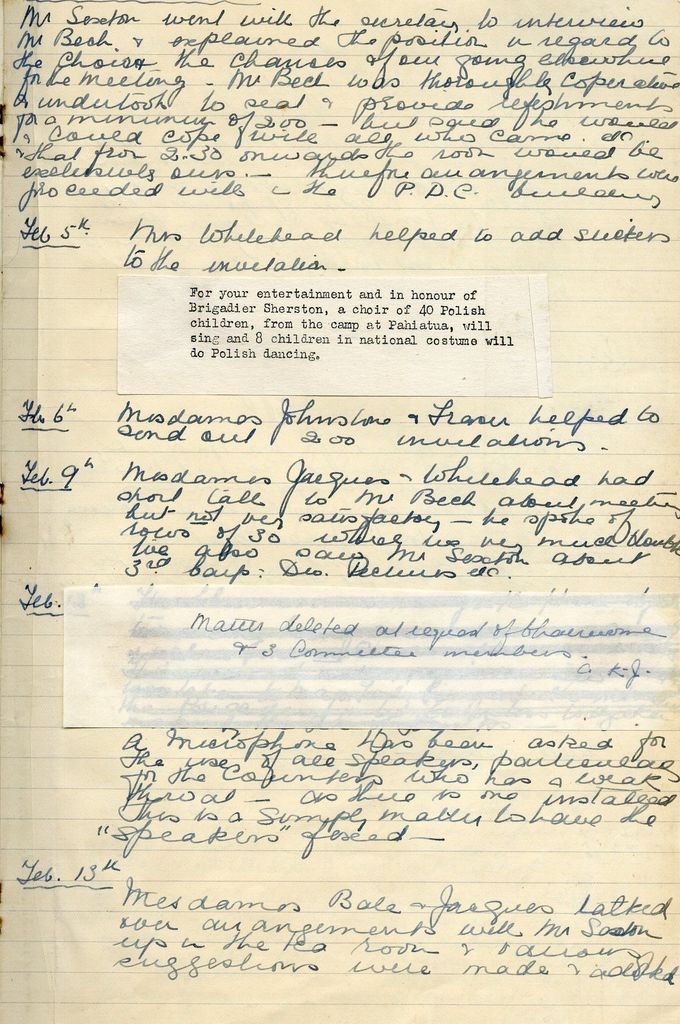 Mr Sexton went with the secretary to interview
Mr Beck & explained the position in regard to
the choice & the chances of our going elsewhere
for the meeting - Mr Beck was thoroughly coperative
& undertook to seat & provide refreshments
for a minimum of 200 - but said he would
& could cope with all who came etc
& that from 2.30 onwards the room would be
exclusively ours. - Therefore arrangements were
proceeded with in the P.D.C. building
Feb 5th Mrs Whitehead helped to add stickers
to the invitation -
For your entertainment and in honour of
Brigadier Sherston, a choir of 40 Polish
children, from the camp at Pahiatua, will
sing and 8 children in national costume will
do Polish dancing.
Feb 6th Mesdames Johnstone & Fraser helped to
send out 200 invitations.
Feb. 9th Mesdames Jacques & Whitehead had
short talk to Mr Beck about meeting
but not very satisfactory - he spoke of
rows of 30 which we very much doubt
We also saw Mr Sexton about
3rd Batp: Div. Pictures etc.
Feb.
Matter deleted at request of Chairwoman
& 3 Committee members.
C K-J.
A Microphone has been asked for
the use of all speakers, particularly
for the Countess who has a weak
throat - as there is one installed
this is a simple matter to have the
"Speakers" fixed -
Feb. 13th
Mesdames Bale & Jacques talked
over arrangements with Mr Sexton
up in the tea room & various
suggestions were made & adopted